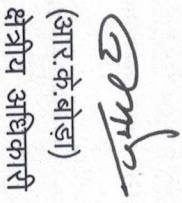 (आर.के.बोड़ा)
क्षेत्रीय अधिकारी